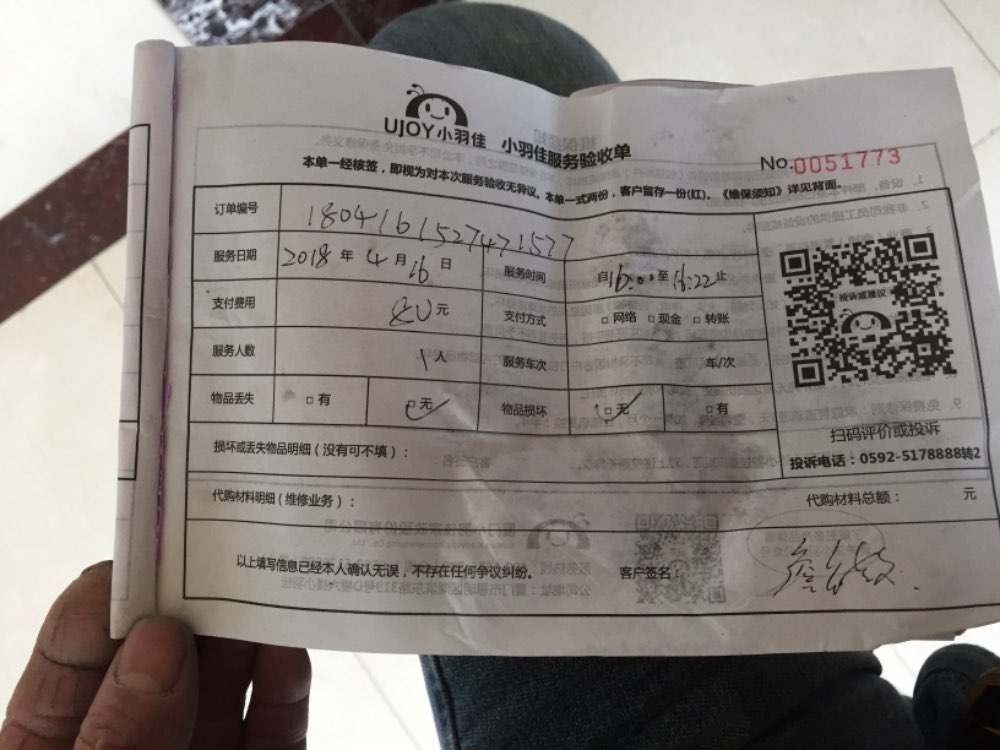 UJOY小羽佳 小羽佳服务验收单
No.0051773
本单一经核签，即视为对本次服务验收无异议。本单一式两份，客户留存一份(红)。《维保须知》详见背面。
订单编号 1804161527471577
服务日期 2018 年 4 月 16 日 服务时间 自16:00至16:22止
支付费用 80元 支付方式 □ 网络 □ 现金 □ 转账
服务人数 1人 服务车次 车/次
物品丢失 □ 有 □ 无 物品损坏 □ 无 □ 有
投诉或建议
扫码评价或投诉
投诉电话：0592-5178888转2
损坏或丢失物品明细（没有可不填）：
代购材料明细（维修业务）： 代购材料总额： 元
以上填写信息已经本人确认无误，不存在任何争议纠纷。 客户签名：